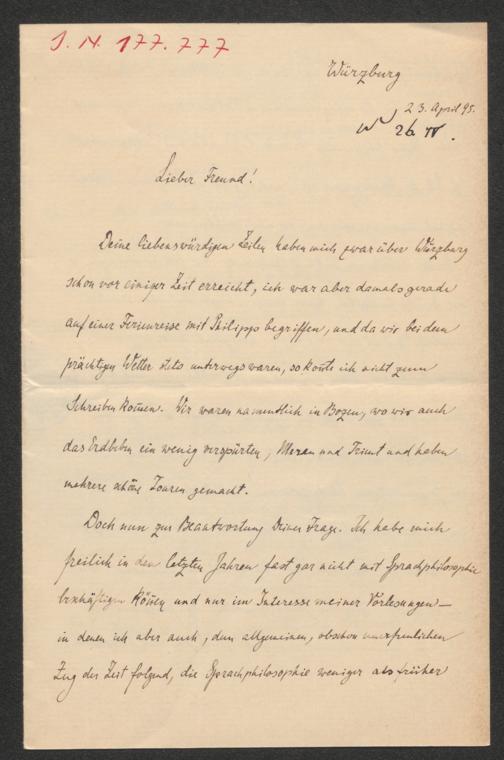 J. N. 177.777
Würzburg
23. April 95.
26 IV.
Lieber Freund!
Deine liebenswürdigen Zeilen haben mich zwar über Würzburg
schon vor einiger Zeit erreicht, ich war aber damals gerade
auf einer Ferienreise mit Philipp begriffen, und da wir bei dem
prächtigen Wetter stets unterwegs waren, so kon̅te ich nicht zum
Schreiben kom̅en. Wir waren namentlich in Bozen, wo wir auch
das Erdbeben ein wenig verspürten, Meran und Trient und haben
mehrere schöne Touren gemacht.
Doch nun zur Beantwortung Deiner Frage. Ich habe mich
freilich in den letzten Jahren fast gar nicht mit Sprachphilosophie
beschäftigen kön̅en und nur im Interesse meiner Vorlesungen –
in denen ich aber auch, dem allgemeinen, obschon unerfreulichen
Zug der Zeit folgend, die Sprachphilosophie weniger als früher